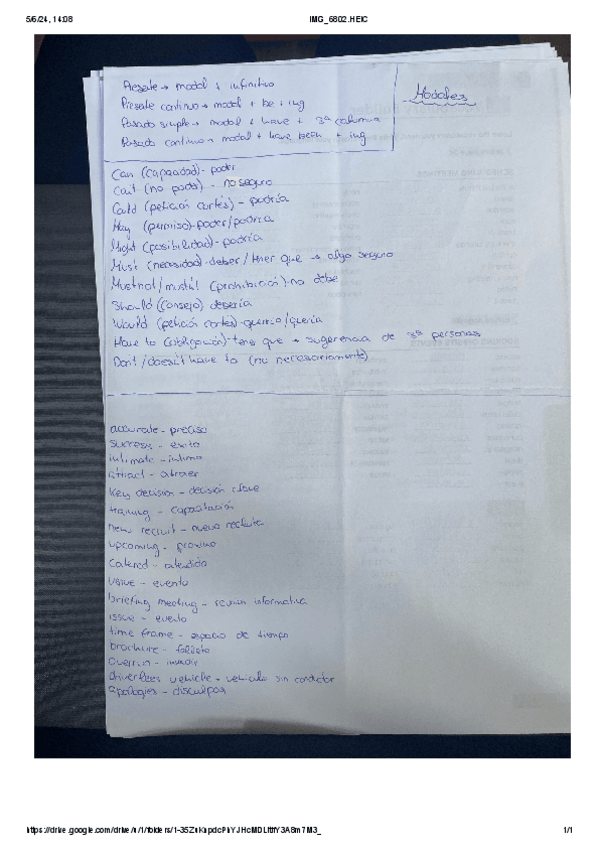 5/6/24, 14:08
IMG_6802.HEIC
Presente → modal + infinitivo
Modales
Presente continuo → modal + be + ing
Pasado simple → modal + have + 3ª columna
Pasado continuo → modal + have been + ing
Can (capacidad) - poder
Can't (no poder) - no seguro
Could (petición cortés) - podría
May (permiso) - poder/podría
Might (posibilidad) - podría
Must (necesidad) - deber/tener que → algo seguro
Must not/mustn't (prohibición) - no debe
Should (consejo) debería
Would (petición cortés) - querría/quería
Have to (obligación) - tener que → sugerencia de 3ª personas
Don't/doesn't have to (no necesariamente)
accurate - preciso
success - exito
intimate - intimo
attract - atraer
Key decision - decisión clave
training - capacitación
new recruit - nuevo recluta
upcoming - proximo
Catered - atendido
- evento
briefing meeting - reunion informativa
issue - evento
time frame - espacio de tiempo
brochure - folleto
Overrun - invadir
driverless vehicle - vehiculo sin conductor
apologies - disculpas
1/1